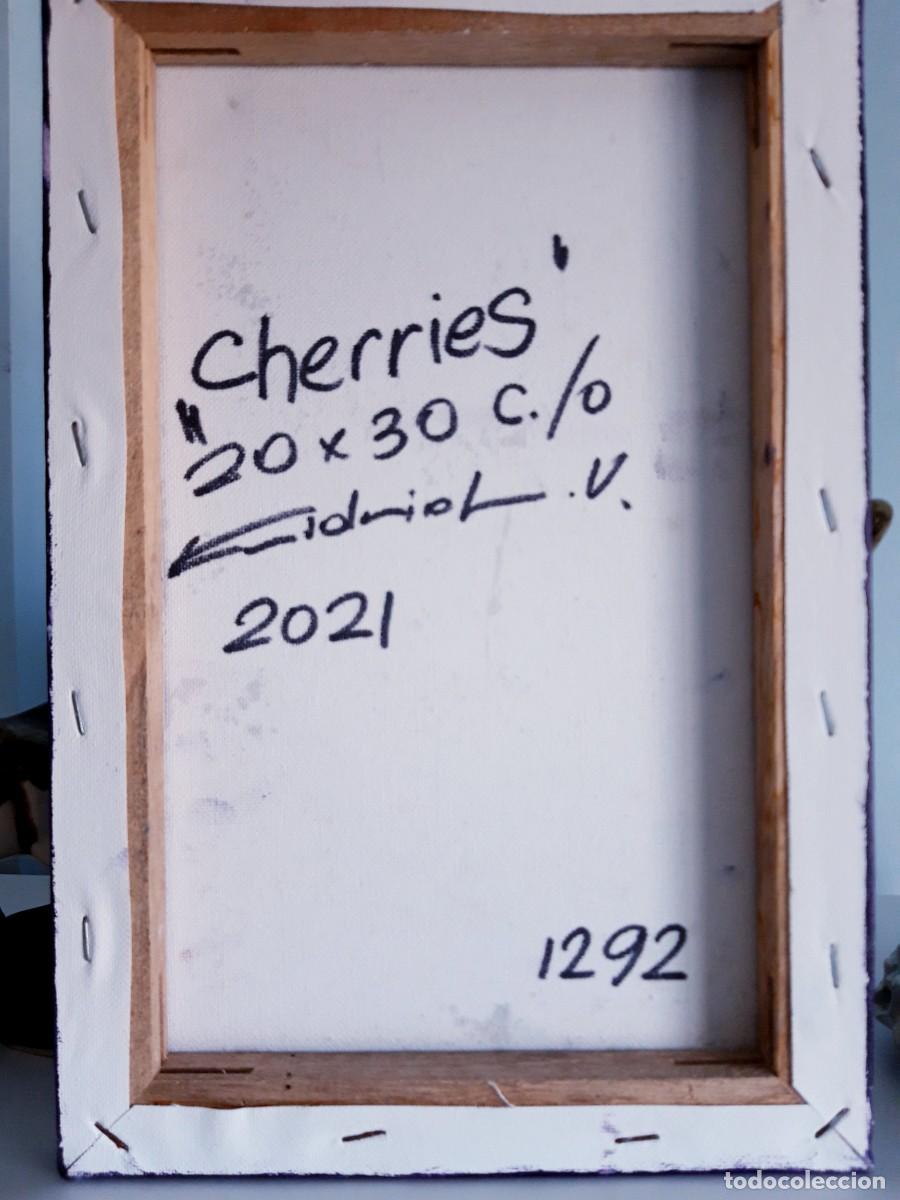 "Cherries"
20 x 30 c./o
.V.
2021
1292
todocoleccion